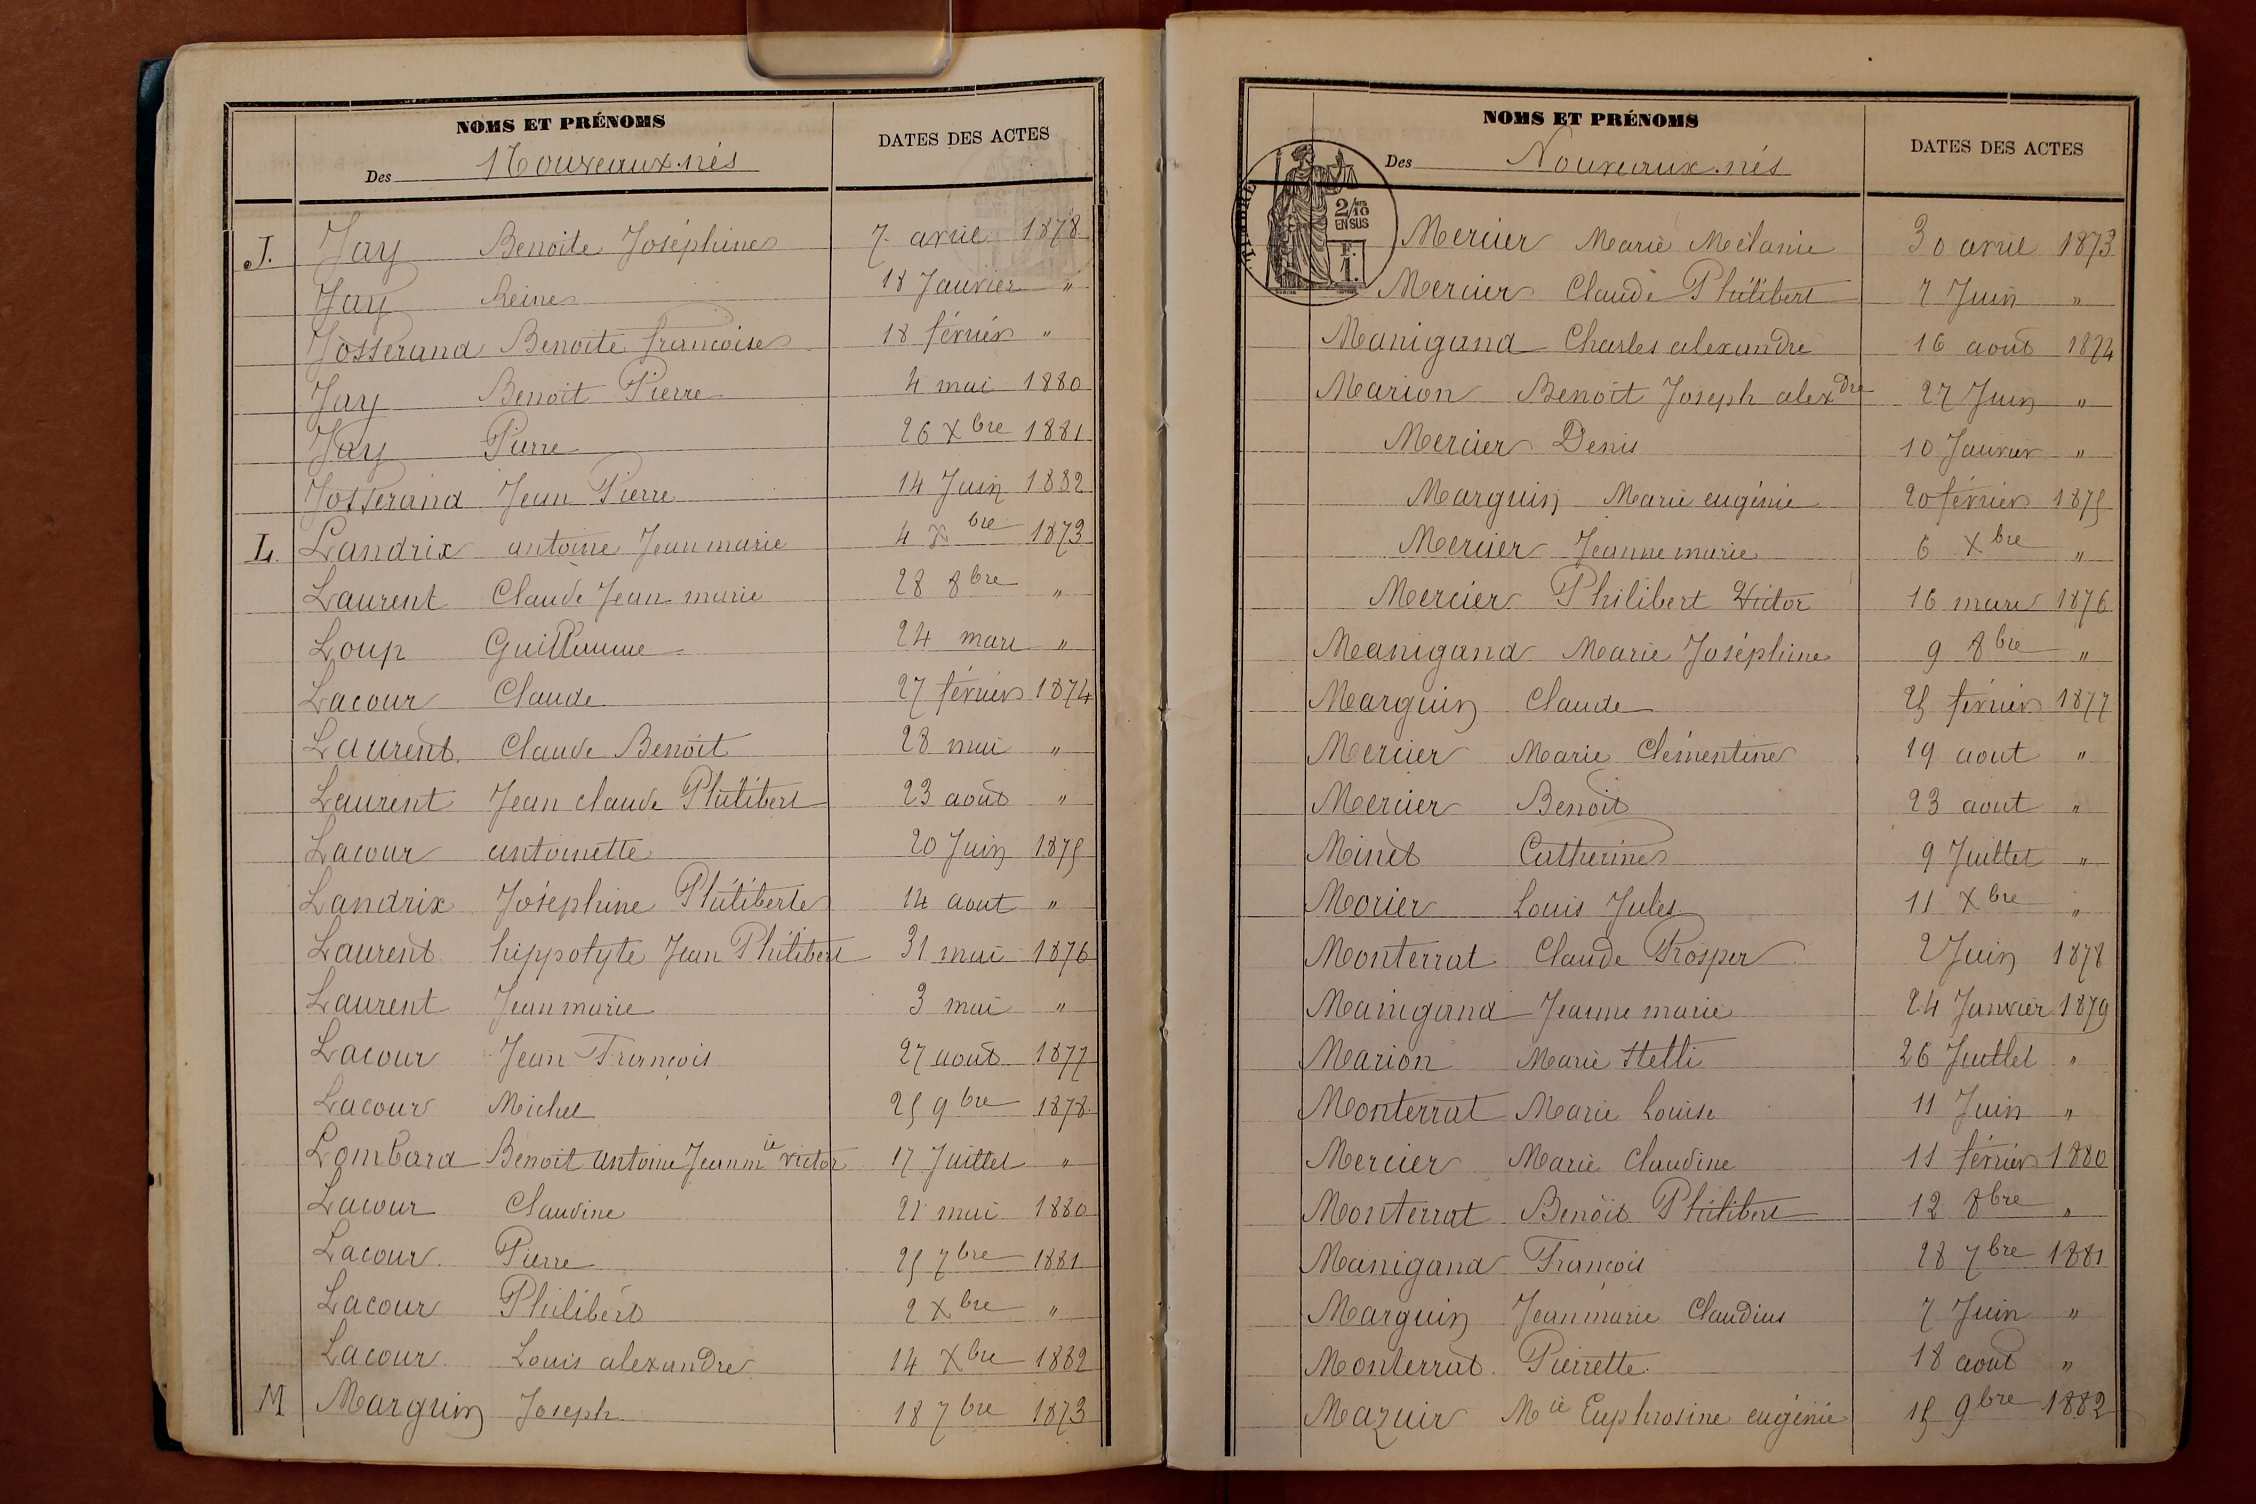 NOMS ET PRÉNOMS
DATES DES ACTES
Des Nouveaux nés
J. Jay Benoite Joséphine 7 avril 1878
Jay Reine 18 Janvier "
Josserand Benoite francoise 18 février "
Jay Benoit Pierre 4 mai 1880
Jay Pierre 26 Xbre 1881
Josserand Jean Pierre 14 Juin 1882
L. Landrix antoine Jean marie 4 Xbre 1873
Laurent Claude Jean marie 28 8bre "
Loup Guillaume 24 mars "
Lacour Claude 27 février 1874
Laurent Claude Benoit 28 mai "
Laurent Jean claude Philibert 23 aout "
Lacour antoinette 20 Juin 1875
Landrix Joséphine Philiberte 14 aout "
Laurent hippolyte Jean Philibert 31 mai 1876
Laurent Jean marie 3 mai "
Lacour Jean François 27 aout 1877
Lacour Michel 25 9bre 1878
Lombard Benoit antoine Jean mie victor 17 Juillet "
Lacour Claudine 21 mai 1880
Lacour Pierre 25 7bre 1881
Lacour Philibert 2 Xbre "
Lacour Louis alexandre 14 Xbre 1882
M Marguin Joseph 18 7bre 1873
NOMS ET PRÉNOMS
DATES DES ACTES
Des Nouveaux nés
TIMBRE
2/10
EN SUS
F.
1.
Mercier Marie Mélanie 30 avril 1873
Mercier Claude Philibert 7 Juin "
Manigand Charles alexandre 16 aout 1874
Marion Benoit Joseph alexdre 27 Juin "
Mercier Denis 10 Janvier "
Marguin Marie eugénie 20 février 1875
Mercier Jeanne marie 6 Xbre "
Mercier Philibert Victor 16 mars 1876
Manigand Marie Joséphine 9 8bre "
Marguin Claude 25 février 1877
Mercier Marie Clémentine 19 aout "
Mercier Benoit 23 aout "
Minet Catherine 9 Juillet "
Morier Louis Jules 11 Xbre "
Monterrat Claude Prosper 2 Juin 1878
Manigand Jeanne marie 24 Janvier 1879
Marion Marie Stelli 26 Juillet "
Monterrat Marie Louise 11 Juin "
Mercier Marie Claudine 11 février 1880
Monterrat Benoit Philibert 12 8bre "
Manigand François 28 7bre 1881
Marguin Jean marie Claudius 7 Juin "
Monterrat Pierrette 18 aout "
Mazuir Mie Euphrosine eugénie 15 9bre 1882